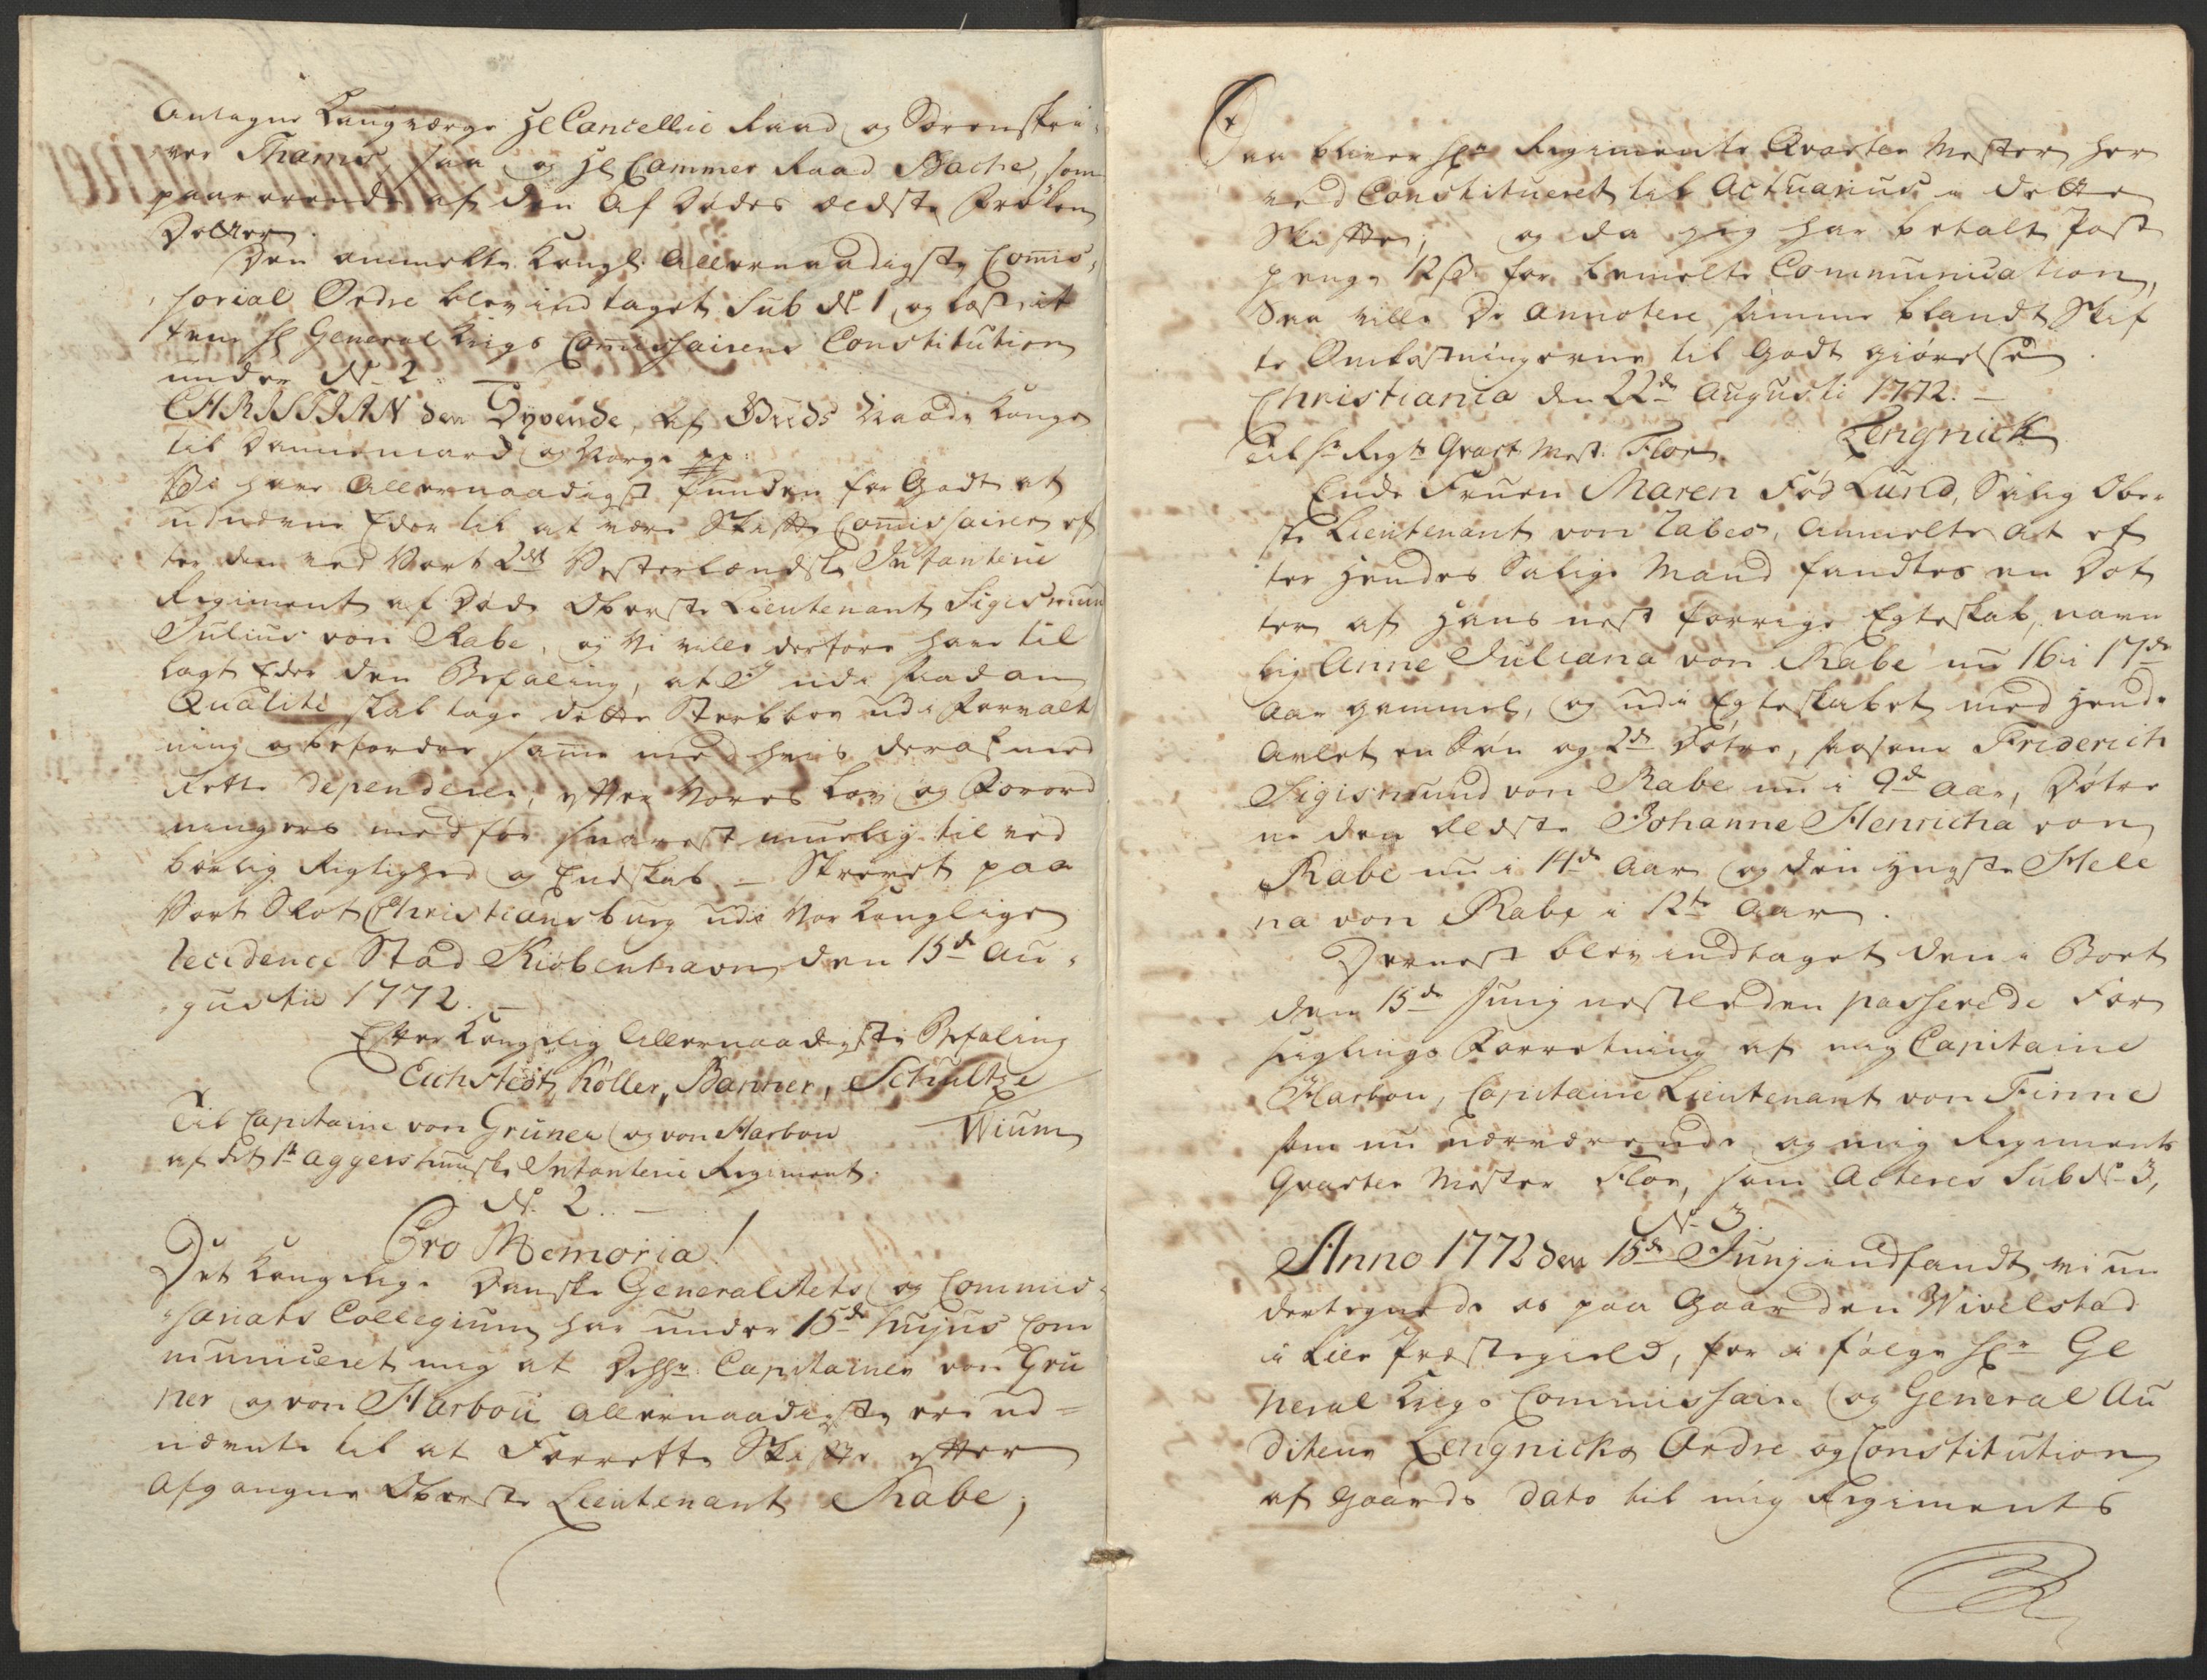 Antagne Laugværge Hl Cancellie Raad og Sorenskri-
ver Thams, saa og Hl Cammer Raad Bache, som
paarørende af den Af Dødes ældste Frøken
Dotter.
Den anmelte Kongl: Allernaadigste Com̄is-
sorial Ordre blev indtaget Sub No 1, og
Hr General Krigs Com̄issairens Constitution
under No 2.
CHRISTIAN den Syvende, Af Guds Naade Konge
til Dannemarck og Norge pp:
Vi have Allernaadigst funden for Godt at
udnævne Eder til at være Skifte Com̄issairer ef
ter den ved Vort 2det Vesterlendske Infanterie
Regiment af Døde Oberste Lieutenant Sigismun
Julius von Rabe, og Vi ville derfore have til
lagt Eder den Befaling, at I udi saadan
Qualité skal tage dette Sterbboe udi Forvalt
ning og befordre sam̄e med hvis deraf med
Rette dependerer, efter Vores Lov og Forord
ningers medfør snarest muelig til ved
børlig Rigtighed og Endskab – Skrevet paa
Vort Slot Christiansburg udi Vor Konglige
Recidence Stad Kiøbenhavn den 15de Au-
gusti 1772. –
Efter Kongelig Allernaadigste Befaling
Eichstedt, Köller, Banner, Schultze
Wium
Til Capitaine von Grüner og von Harbou
af det 1te Aggershuuske Infanterie Regiment.
No 2. –
Pro Memoria!
Det Kongelige Danske Generalitets og Commis-
sariats Collegium har under 15de hujus Com
municeret mig at Capitainer von Grü
ner og von Harbou Allernaadigste ere ud=
nævnte til at Forrette Skifte efter
Afgangne Oberste Lieutenant Rabe;
Saa bliver Hr Regiments Qvarter Mester her
ved Constitueret til Actuarius i dette
Skifte; og da jeg har betalt Post
penge 12 s. for bemelte Communication,
Saa ville De Annotere samme blandt Skif
te Omkostningerne til Godt giørelse.
Christiania den 22de Augusti 1772. –
Lengnick
Til Hr Regts Qvart: Mest: Flor
Ende Fruen Maren Fød Lund, Salig Ober
ste Lieutenant von Rabes, Anmelte at ef
ter Hendes Salige Mand fandtes en Dot
ter af Hans nest forrige Egteskab, navn
lig Anne Juliana von Rabe nu 16 i 17de
Aar gammel, og udi Egteskabet med Hende
Avlet en Søn og 2de Døtre, Friderich
Sigismund von Rabe nu i 9de Aar, Døtre
ne den Ældste Johanne Henricha von
Rabe nu i 14de Aar og den yngste Hele
na von Rabe i 12te Aar.
Dernest blev indtaget den i Boet
den 15de Junj nestleden passerede For
seglings Forretning af mig Capitaine
Harbou, Capitaine Lieutenant von Finne
som nu nærværende og mig Regiments
Qvarter Mester Flor, som Acteres Sub No 3,
No 3.
Anno 1772 den 15de Junj indfandt vi un
dertegnede os paa Gaarden Wivelstad
i Lier Præstegield, for i følge Hr Ge
neral Krigs Commissaire og General Au
diteur Lengnicks Ordre og Constitution
af Gaards Dato til mig Regiments